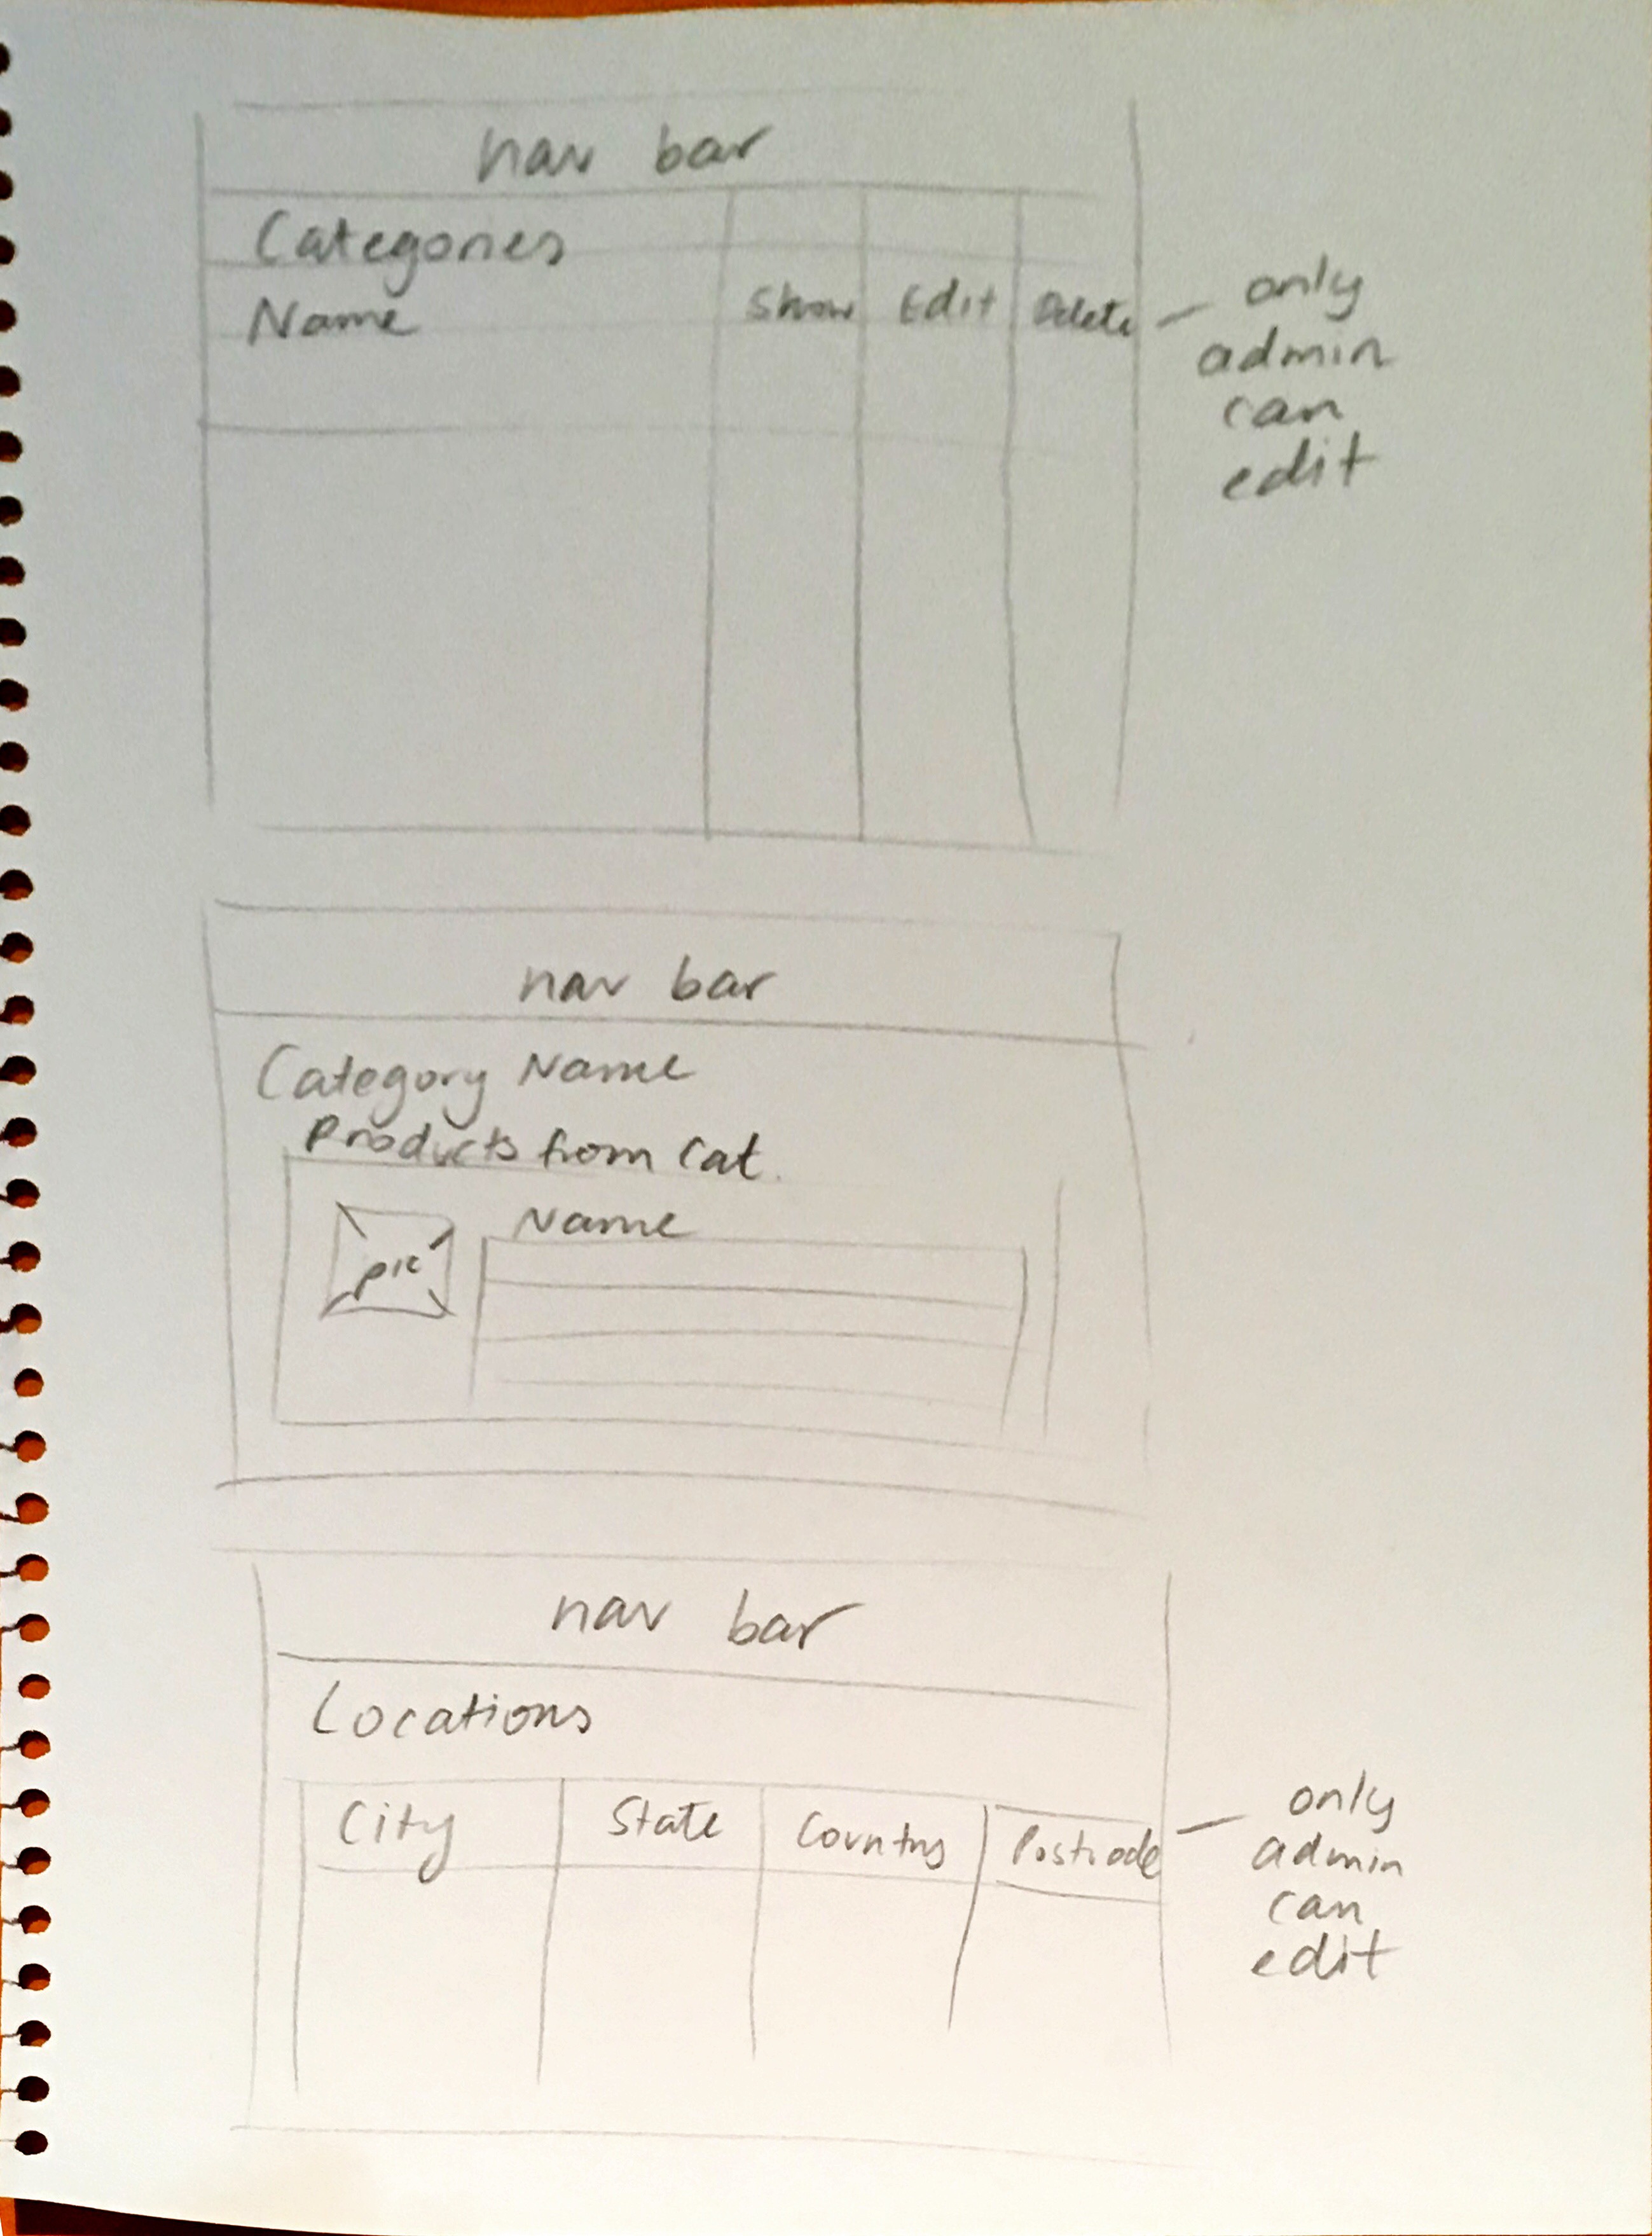 nav bar
Categories
Name Show Edit Delete
only
admin
can
edit
nav bar
Category Name
Products from Cat.
pic
Name
nav bar
Locations
City State Country Postcode
only
admin
can
edit